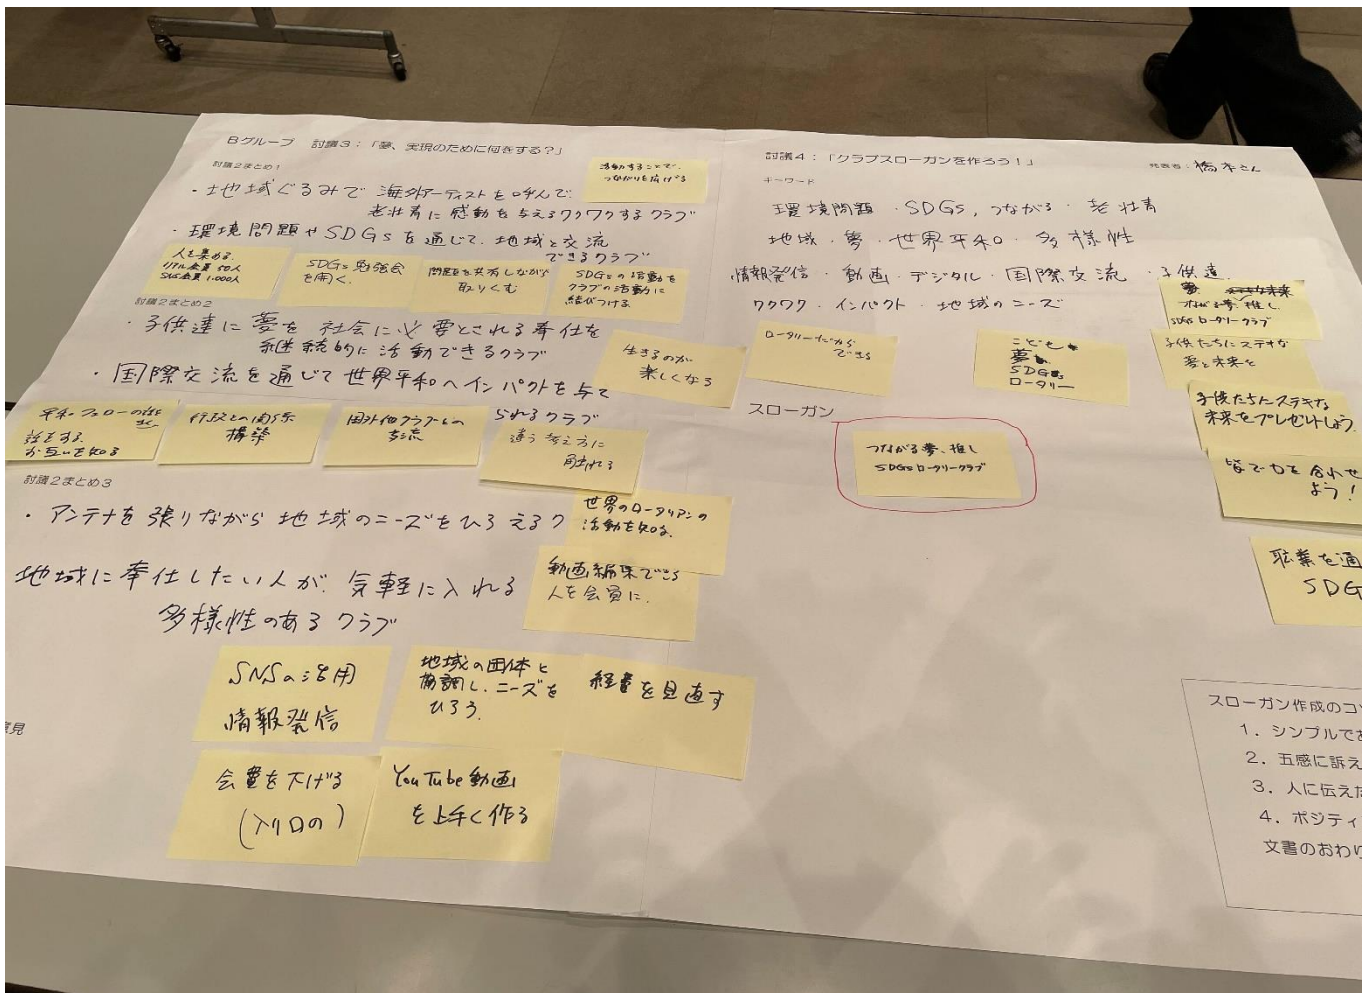 Bグループ　討議3：「夢、実現のために何をする？」
討議2まとめ1
活動することで、
つながりを広げる
・地域ぐるみで 海外アーティストを呼んで、
老壮青に感動を与えるワクワクするクラブ
・環境問題やSDGsを通じて、地域と交流
できるクラブ
人を集める、
リアル会員 50人
SNS会員 1,000人
SDGs 勉強会
を開く、
問題を共有しながら
取りくむ
SDGsの活動を
クラブの活動に
結びつける
討議2まとめ2
・子供達に夢を 社会に必要とされる奉仕を
継続的に活動できるクラブ
生きるのが
楽しくなる
・国際交流を通じて世界平和へインパクトを与え
られるクラブ
平和フェローの
話をする、
お互いを知る
行政との関係
構築
国外他クラブとの
交流
違う考え方に
触れる
討議2まとめ3
・アンテナを張りながら 地域のニーズをひろえるク
世界のロータリアンの
活動を知る、
地域に奉仕したい人が、気軽に入れる
多様性のあるクラブ
動画編集できる
人を会員に、
SNSの活用
情報発信
地域の団体と
協調し、ニーズを
ひろう、
経費を見直す
会費を下げる
(入り口の)
YouTube動画
を上手く作る
意見
討議4：「クラブスローガンを作ろう！」
発表者：橋本さん
キーワード
環境問題・SDGs、つながる・老壮青
地域・夢・世界平和・多様性
情報発信・動画・デジタル・国際交流・子供達、
ワクワク・インパクト・地域のニーズ
ロータリーだから
できる
こども
夢
SDGs
ロータリー
つながる夢、推し
SDGsロータリークラブ
子供たちにステキな
夢と未来を
子供たちにステキな
未来をプレゼントしよう、
皆で力を合わせ
よう！
職業を通
SDG
スローガン
つながる夢、推し
SDGsロータリークラブ
スローガン作成のコ
1．シンプルで
2．五感に訴え
3．人に伝えた
4．ポジティ
文書のおわり